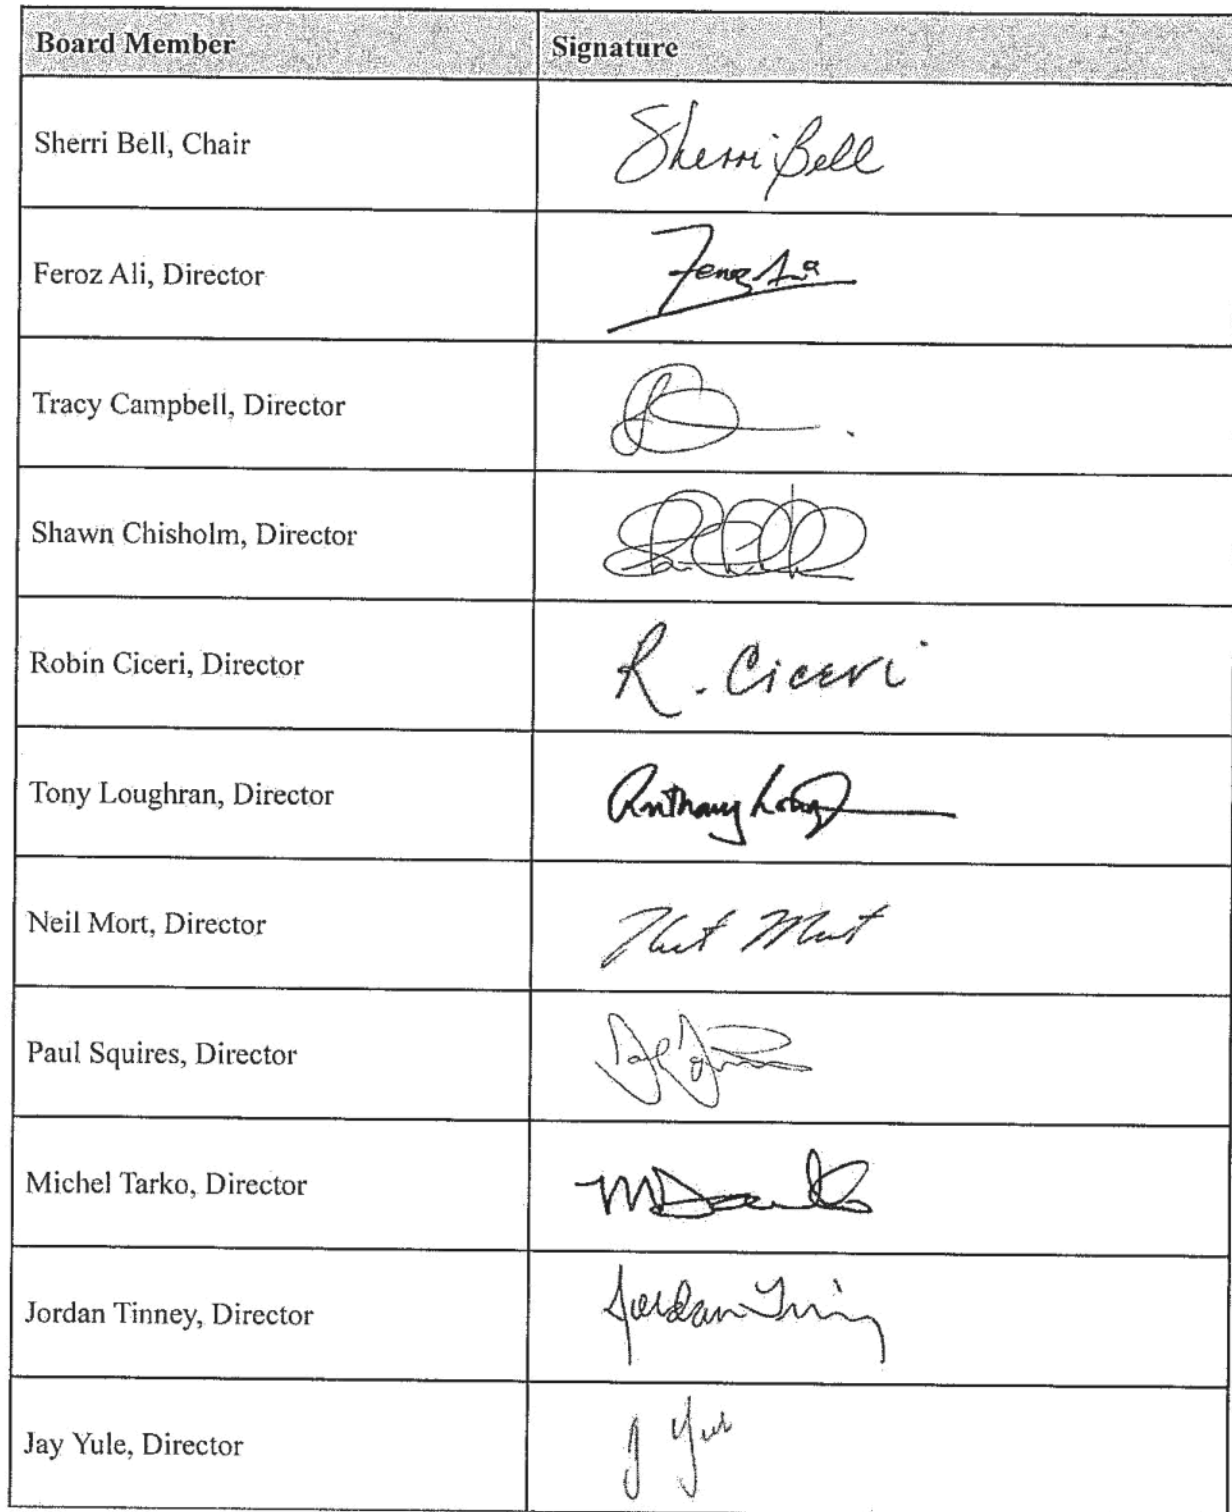 Board Member Signature
Sherri Bell, Chair Sherri Bell
Feroz Ali, Director
Tracy Campbell, Director
Shawn Chisholm, Director
Robin Ciceri, Director R. Ciceri
Tony Loughran, Director Anthony
Neil Mort, Director
Paul Squires, Director
Michel Tarko, Director
Jordan Tinney, Director Jordan
Jay Yule, Director J